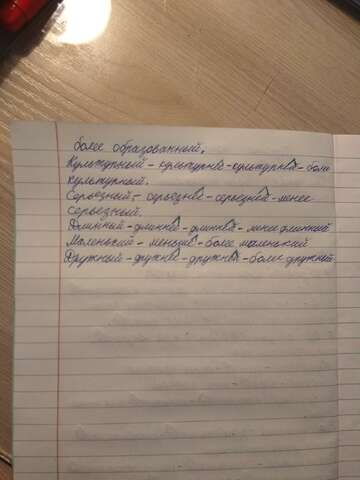 более образованный.
Культурный - культурнее - культурней - более
культурный.
Серьезный - серьезнее - серьезней - менее
серьезный.
Длинный - длиннее - длинней - менее длинный
Маленький - меньше - более маленький
Дружный - дружнее - дружней - более дружный